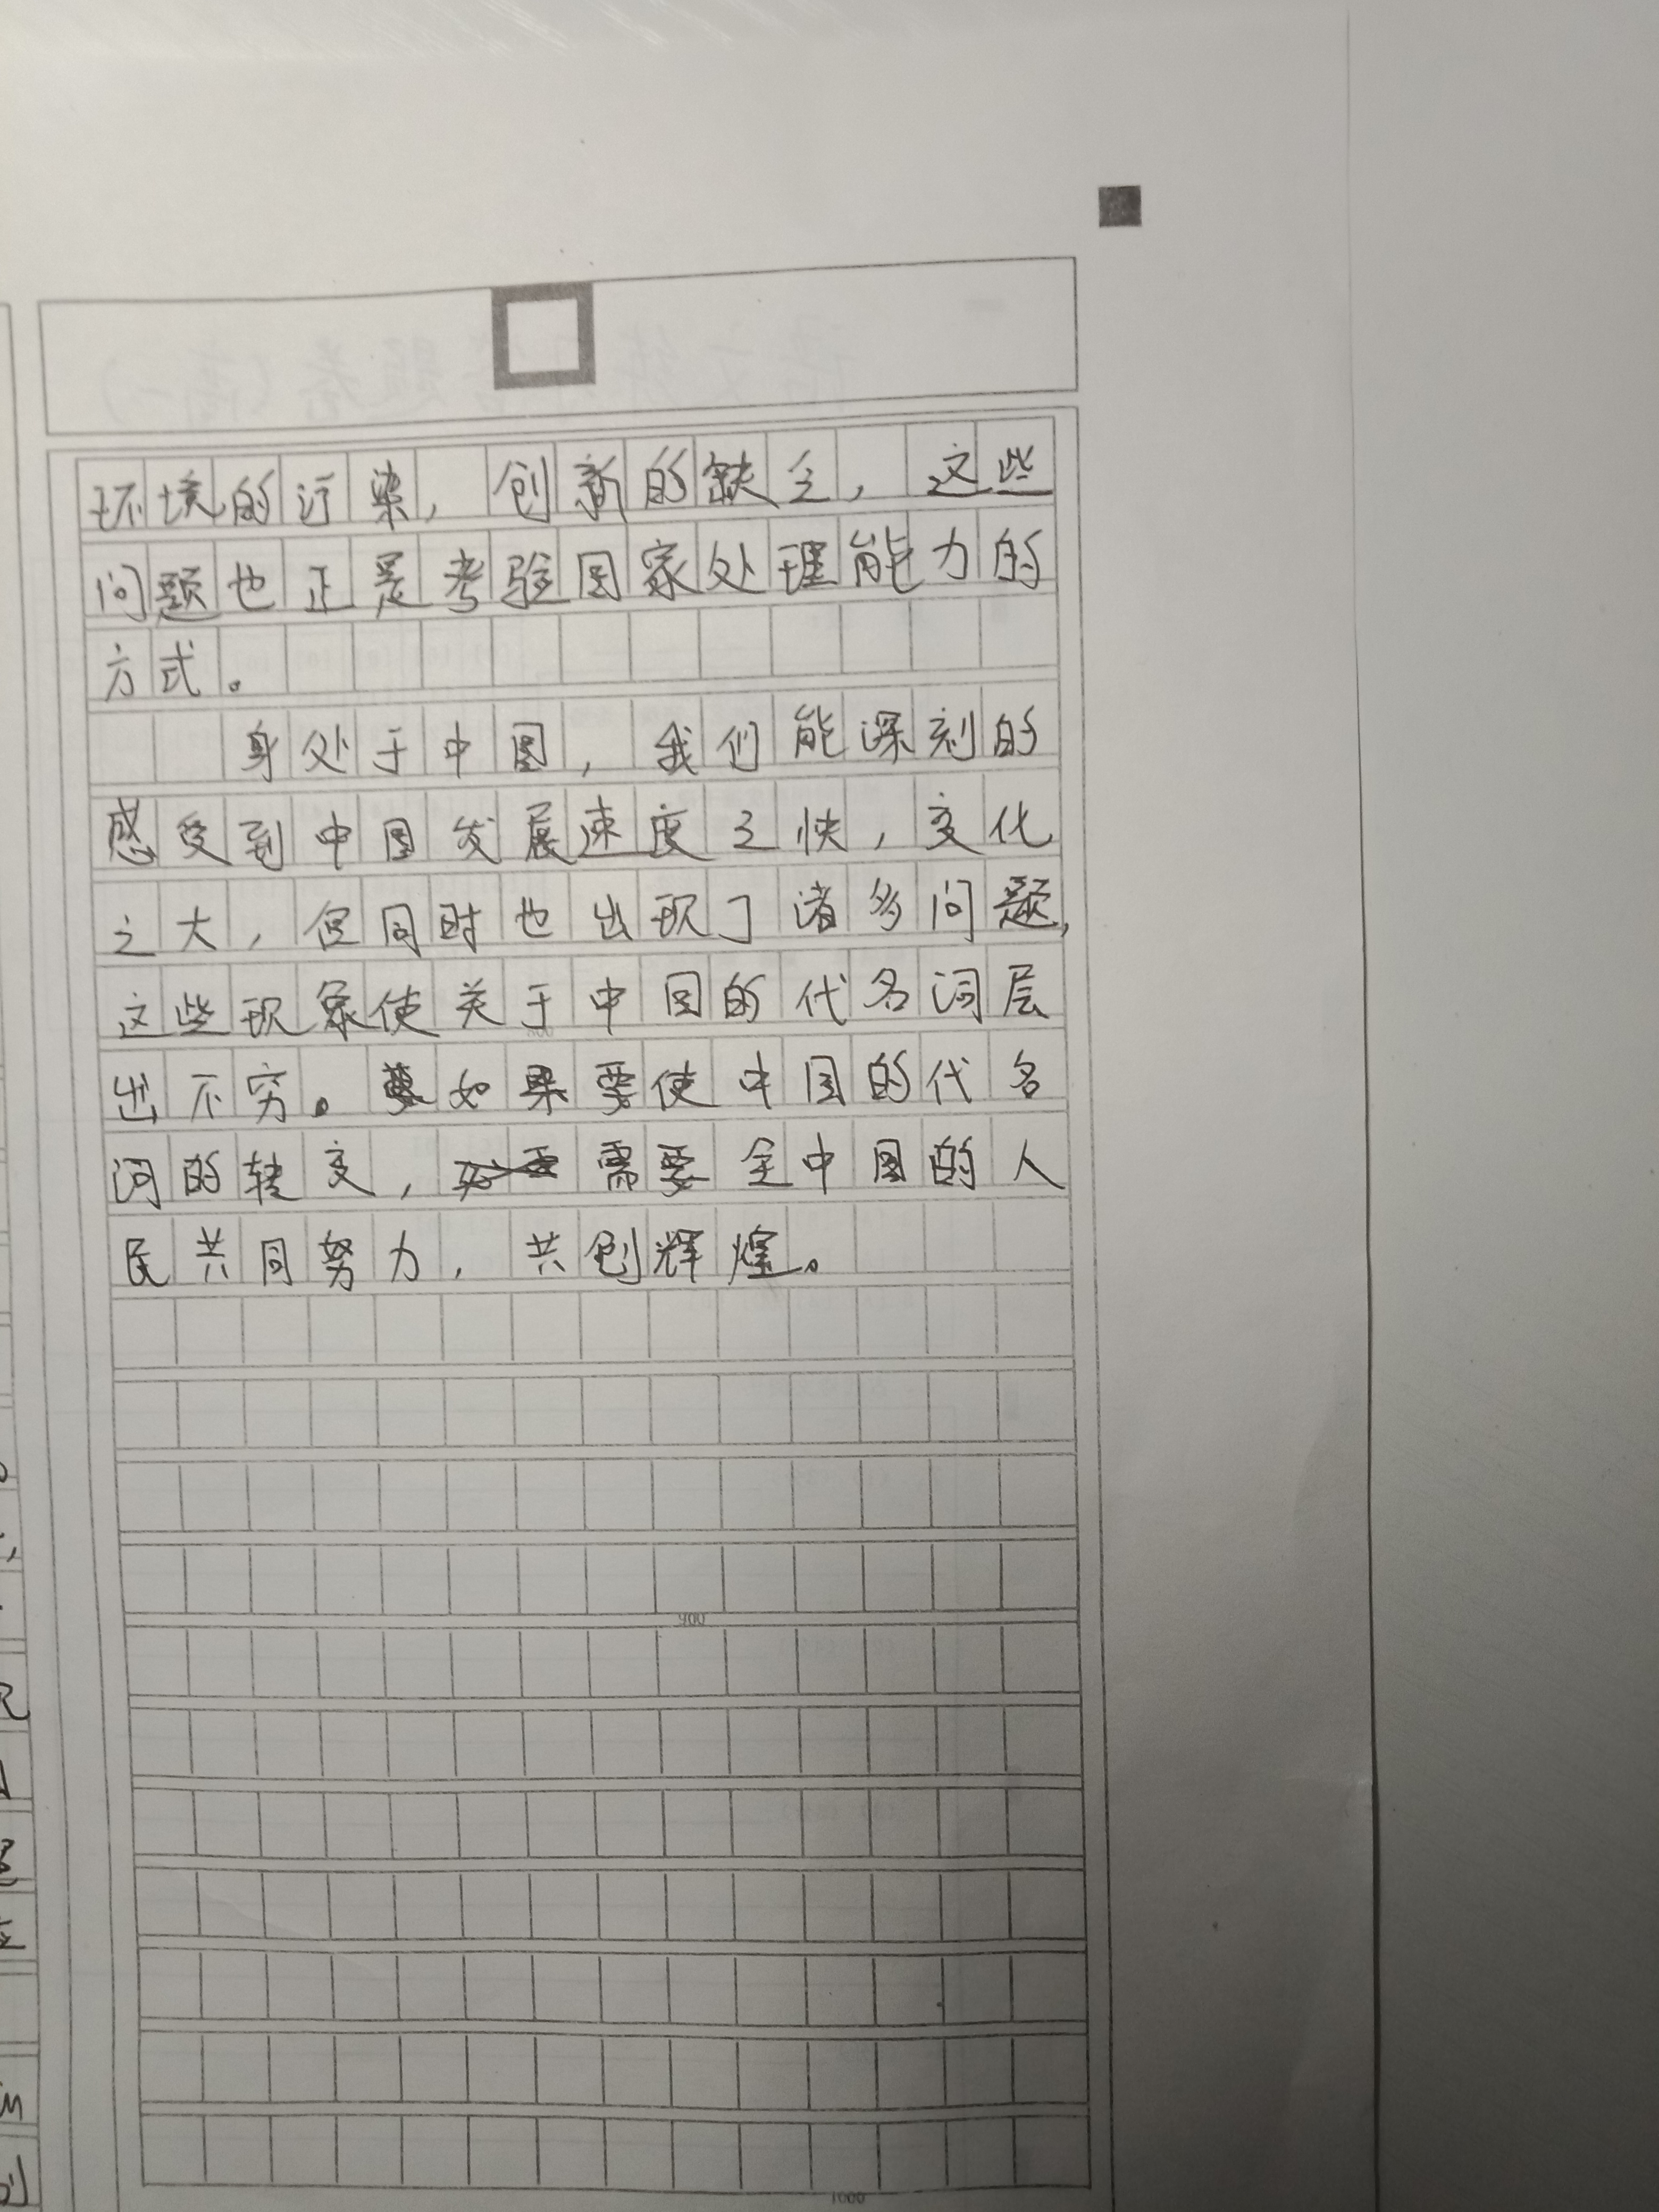 环境的污染，创新的缺乏，这些
问题也正是考验国家处理能力的
方式。
身处于中国，我们能深刻的
感受到中国发展速度之快，变化
之大，但同时也出现了诸多问题，
这些现象使关于中国的代名词层
出不穷。如果要使中国的代名
词的转变，需要全中国的人
民共同努力，共创辉煌。
900
1000